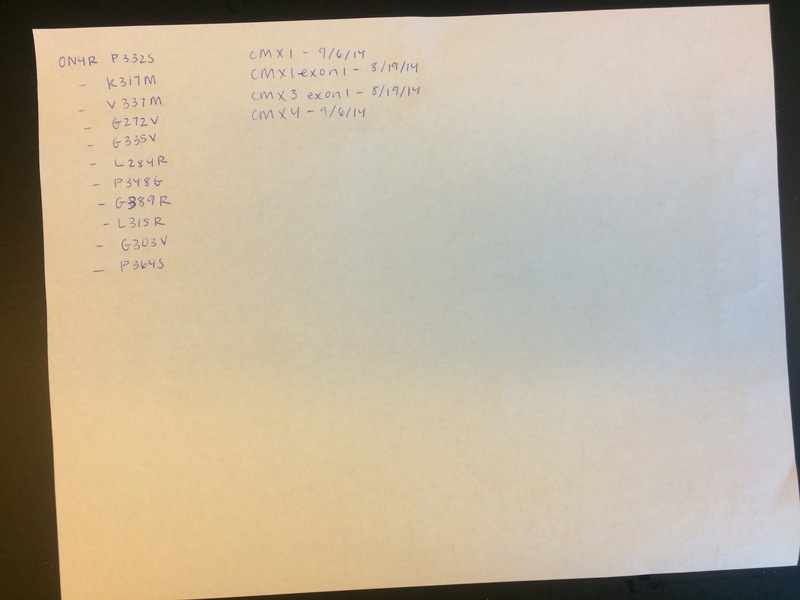 ON4R P332S
- K317M
- V337M
- G272V
- G335V
- L284R
- P348G
- G389R
- L315R
- G303V
- P364S
CMX1 - 9/6/14
CMX1-exon1 - 8/19/14
CMX3 exon1 - 8/19/14
CMX4 - 9/6/14